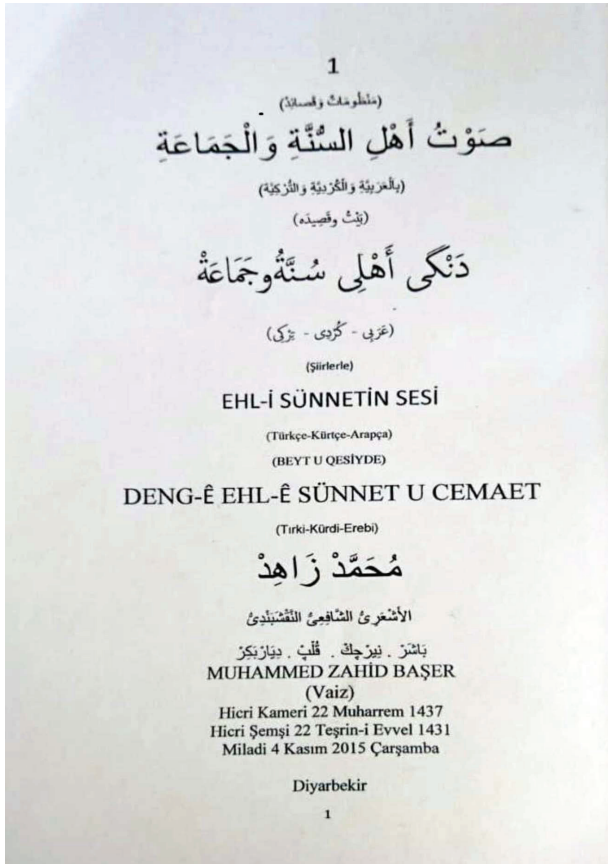 1
(مَنْظُومَاتٌ وَقَصَائِدُ)
صَوْتُ أَهْلِ السُّنَّةِ وَالْجَمَاعَةِ
(بِالْعَرَبِيَّةِ وَالْكُرْدِيَّةِ وَالتُّرْكِيَّةِ)
(بَيْتُ وقَصِيدَه)
دَنْگى أَهْلِى سُنَّةُوجَمَاعَةْ
(عَرَبِي - كُرْدِى - تِرْكِى)
(Şiirlerle)
EHL-İ SÜNNETİN SESİ
(Türkçe-Kürtçe-Arapça)
(BEYT U QESIYDE)
DENG-Ê EHL-Ê SÜNNET U CEMAET
(Tırki-Kürdi-Erebi)
مُحَمَّدْ زَاهِدْ
الأَشْعَرِىُّ الشَّافِعِىُّ النَّقْشَبَنْدِىُّ
بَاشَرْ . نِيرْچِكْ . قُلْپْ . دِيَارْبَكِرْ
MUHAMMED ZAHİD BAŞER
(Vaiz)
Hicri Kameri 22 Muharrem 1437
Hicri Şemşi 22 Teşrin-i Evvel 1431
Miladi 4 Kasım 2015 Çarşamba
Diyarbekir
1